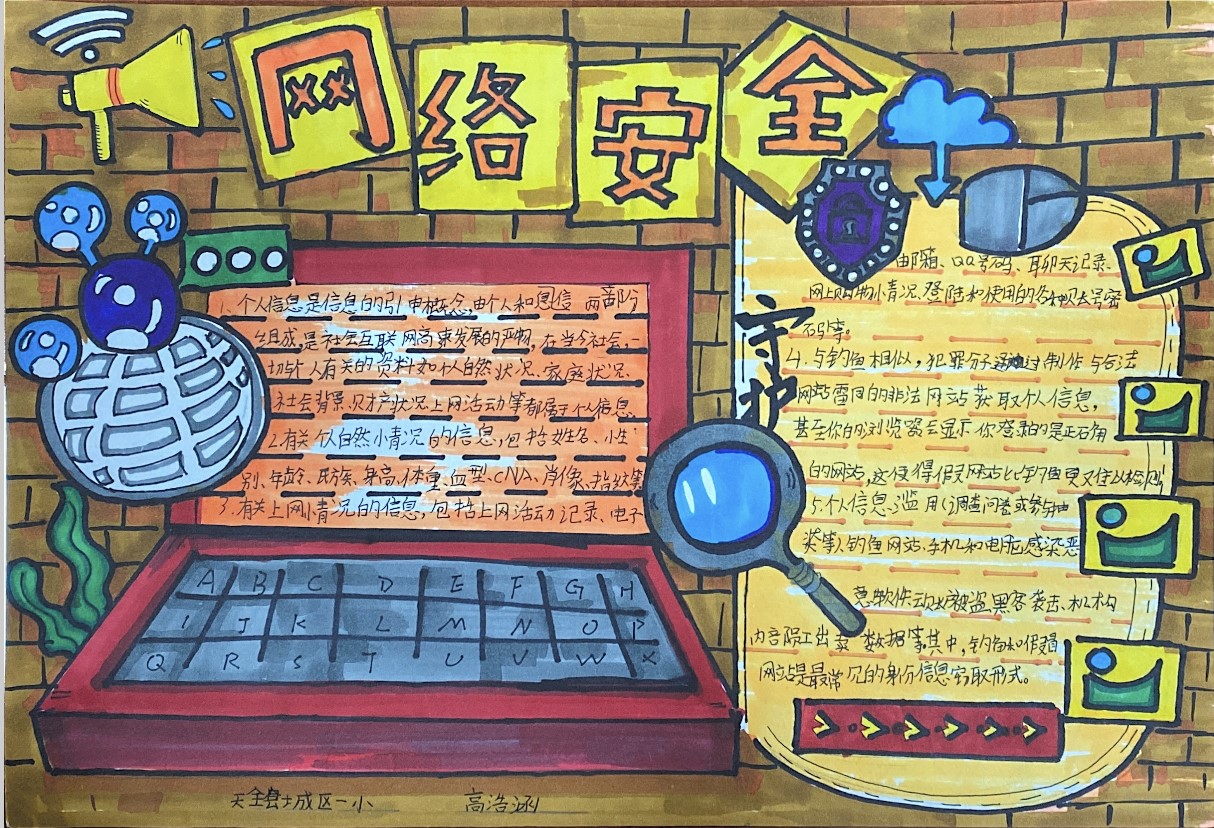 网络安全
守护
1.个人信息是信息的引申概念,由个人和信 两部分
组成,是社会互联网高速发展的产物,在当今社会,一
切与个人有关的资料如个人自然状况、家庭状况、
社会背景、财产状况上网活动等都属于个信息
2.有关个自然小情况的信息,包括姓名、小生
别、年龄、民族、身高、体重、血型、CNA、肖像、指纹等
3.有关上网小情况的信息,包括上网活动记录、电子
邮箱、QQ号码、聊天记录、
网上购物小情况、登陆和使用的各种账号密
码等。
4.与钓鱼相似,犯罪分子通过制作与合法
网站雷同的非法网站获取个人信息,
甚至你的浏览器会显示你登录的是正确
的网站,这使得假网站比钓鱼更又佳以检测!
5.个人信息滥用(调查问卷或
类事)钓鱼网站、手机和电脑感染恶
意软件动被盗黑客袭击、机构
内音陌工出 数据等其中,钓鱼和假冒
网站是最常见的身份信息窃取形式。
A B C D E F G H
I J K L M N O P
Q R S T U V W X
天全县城区一小 高浩涵